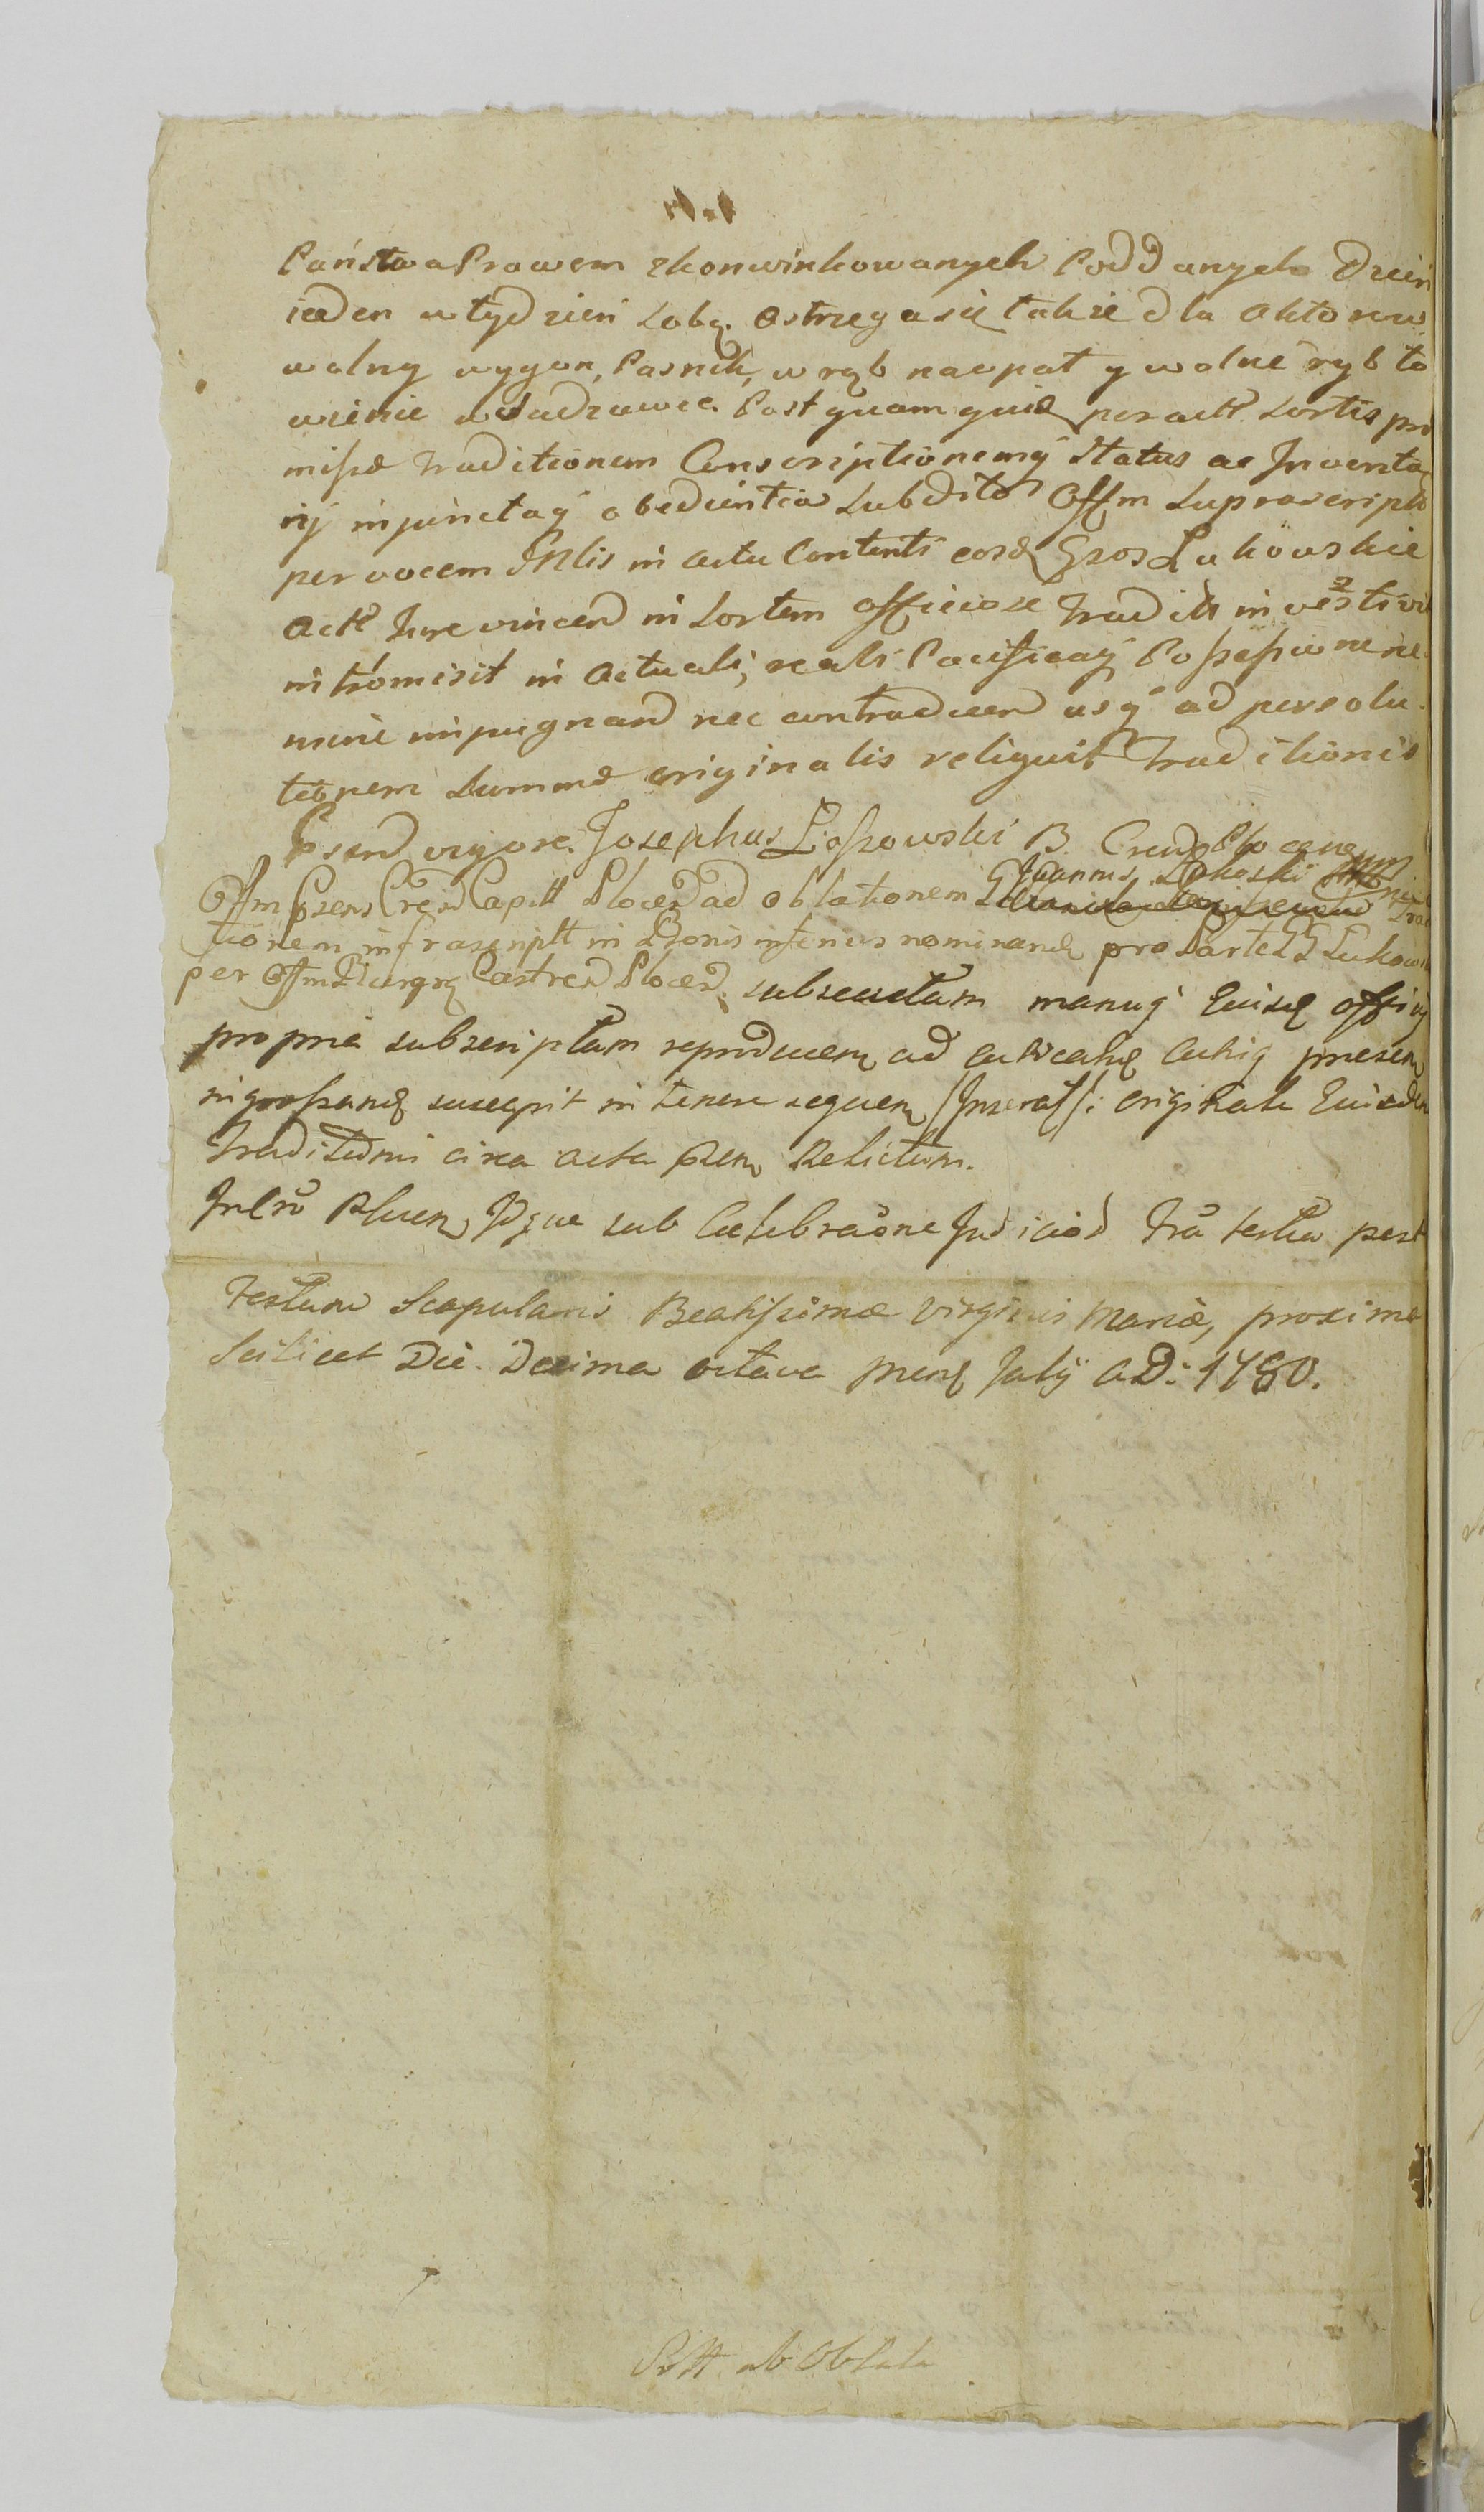 Państwa Prawem zkonwinkowanych Poddanych Dzień
ieden w tydzień Sobą. Ostrzega się także dla Aktorow
wolny wygon, Pasnik, wrąb na opał y wolne ryb ło
wienie w Sadzawce. Post quam quid peractt Sortis prę
missæ traditionem Conscriptionemq́ Status ac Inventa
rij injunctaq́ obedientia Subdito Offm Suprascriptt
per vocem Mlis in Actu Contenti eosd Gsos Lukowskie
Actt Jure vincend in Sortem officiose tradidit investivit
intromisit in Actuali, reali Pacificaq́ Possessione ne
mine impugnand nec contradicend usq́ ad persolu
tionem Summæ originalis reliquit traditionis
Psend vigore. Josephus Lissowski B. Crud Płocen
Offm Psens Crend Capitt Płocen ad oblationem G Joannis Lukoski
tionem infrascriptt in Bonis inferius nominand pro Parte GG Lukows
per Offm Burgrę Castren Płocen. subsecutam manuq́ Euisd officij
propria subscriptam reproducen ad acticand Actisq praesen
ingrossand suscepit in tenore sequen /: Inserat :/ originale Euisdem
traditionis circa acta psen Relictum.
Plucen, Idque sub Celebraõne Judicior tra tertia post
Festum Scapularis Beatissimæ Virginis Mariæ, proxima
Scilicet Die. Decima octava Mens July A.D: 1780.
Rtt ab Oblata